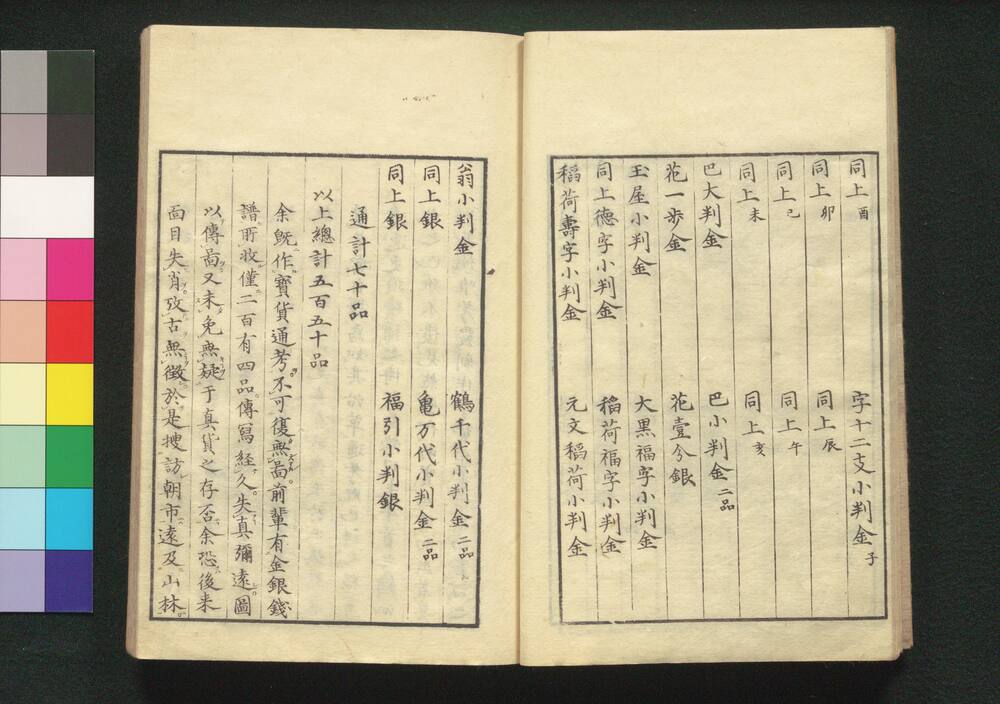 同上酉　字十二支小判金子
同上卯　同上辰
同上己　同上午
同上未　同上亥
巴大判金　巴小判金二品
花一步金　花壹分銀
玉屋小判金　大黒福字小判金
同上德字小判金　稻荷福字小判金
稻荷壽字小判金　元文稻荷小判金
翁小判金　鶴千代小判金二品
同上銀　亀万代小判金二品
同上銀　福引小判銀
通計七十品
以上總計五百五十品
余既作寶貨通考不可復無啚前輩有金銀錢
譜所收僅二百有四品傳寫経久失真彌遠圖
以傳啚又未免無疑于真貨之存否余恐後来
面目失肖攷古無徴於是搜訪朝市遠及山林